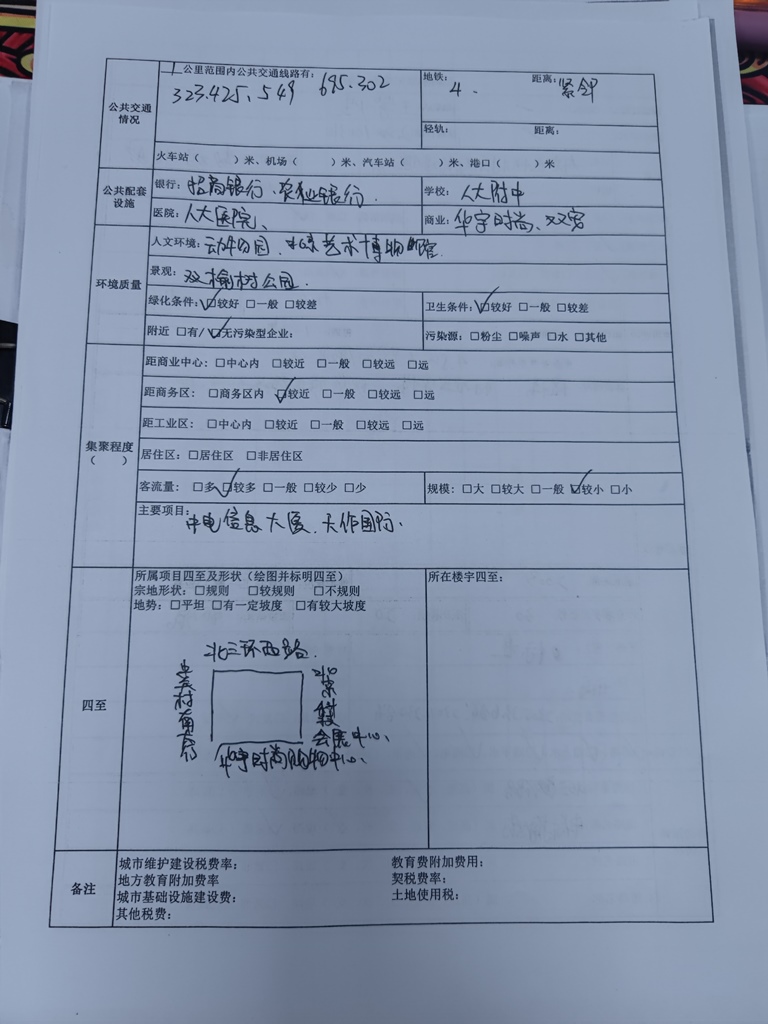 公共交通情况
1公里范围内公共交通线路有: 695.302
323.425、549
地铁: 4. 距离: 紧邻
轻轨: 距离:
火车站（ ）米、机场（ ）米、汽车站（ ）米、港口（ ）米
公共配套设施
银行: 招商银行、农业银行.
学校: 人大附中
医院: 人大医院、
商业: 华宇时尚、双安
环境质量
人文环境: 动物园、北京艺术博物馆.
景观: 双榆树公园.
绿化条件: ☑较好 □一般 □较差
卫生条件: ☑较好 □一般 □较差
附近 □有/☑无污染型企业:
污染源: □粉尘 □噪声 □水 □其他
集聚程度（ ）
距商业中心: □中心内 □较近 □一般 □较远 □远
距商务区: □商务区内 ☑较近 □一般 □较远 □远
距工业区: □中心内 □较近 □一般 □较远 □远
居住区: □居住区 □非居住区
客流量: □多 ☑较多 □一般 □较少 □少
规模: □大 □较大 □一般 ☑较小 □小
主要项目: 中电信息大厦、大作国际、
四至
所属项目四至及形状（绘图并标明四至）
宗地形状: □规则 □较规则 □不规则
地势: □平坦 □有一定坡度 □有较大坡度
所在楼宇四至:
北三环西路.
村南
北京
会展中心、
华宇时尚购物中心、
备注
城市维护建设税费率:
教育费附加费用:
地方教育附加费率
契税费率:
城市基础设施建设费:
土地使用税:
其他税费: